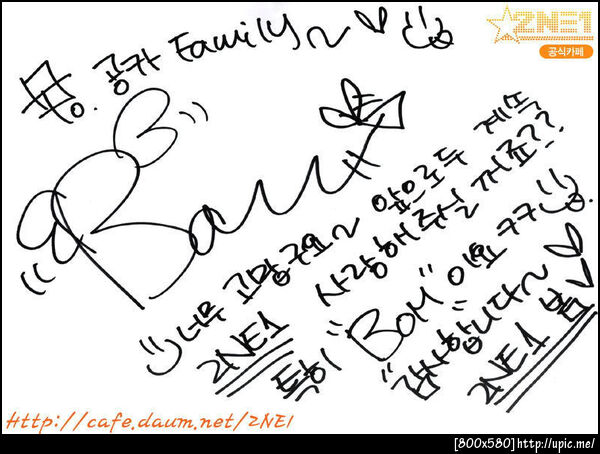 2NE1
공식카페
To. 공카 Family~♡
Bom
너무 고맙구요~ 앞으로두 계속
2NE1 사랑해주실 꺼죠??
특히 "BOM"이요 ㅋㅋ
감사합니다~♡
2NE1 봄♡
Http://cafe.daum.net/2NE1
[800x580]http://upic.me/